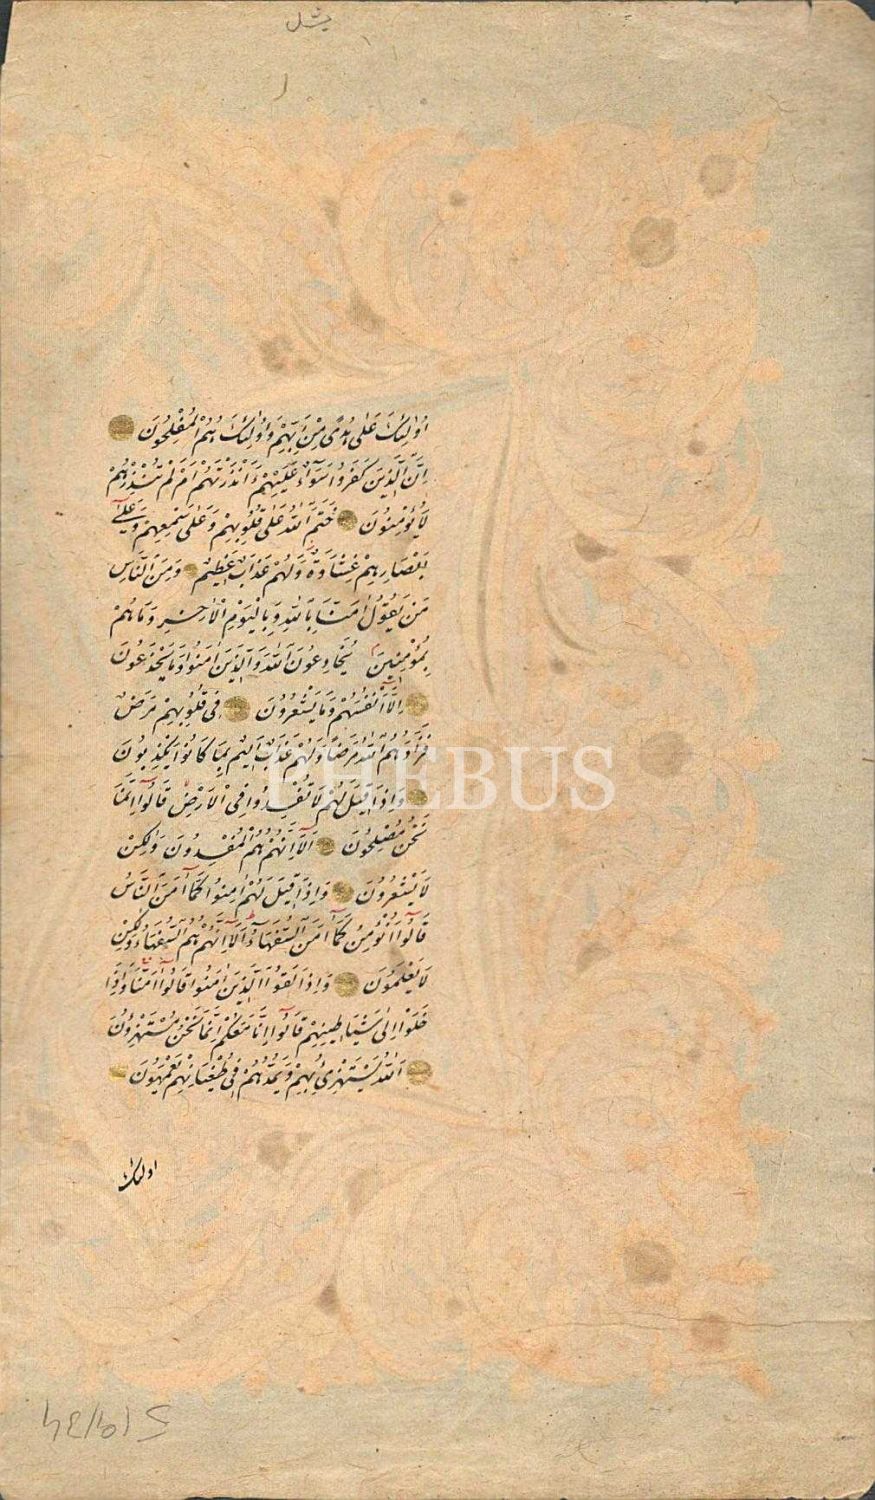 اُولٰئِكَ عَلٰى هُدًى مِنْ رَبِّهِمْ وَاُولٰئِكَ هُمُ الْمُفْلِحُونَ
اِنَّ الَّذِينَ كَفَرُوا سَوَٓاءٌ عَلَيْهِمْ ءَاَنْذَرْتَهُمْ اَمْ لَمْ تُنْذِرْهُمْ
لَا يُؤْمِنُونَ خَتَمَ اللّٰهُ عَلٰى قُلُوبِهِمْ وَعَلٰى سَمْعِهِمْ وَعَلٰٓى
اَبْصَارِهِمْ غِشَاوَةٌ وَلَهُمْ عَذَابٌ عَظِيمٌ وَمِنَ النَّاسِ
مَنْ يَقُولُ اٰمَنَّا بِاللّٰهِ وَبِالْيَوْمِ الْاٰخِرِ وَمَا هُمْ
بِمُؤْمِنِينَ يُخَادِعُونَ اللّٰهَ وَالَّذِينَ اٰمَنُوا وَمَا يَخْدَعُونَ
اِلَّٓا اَنْفُسَهُمْ وَمَا يَشْعُرُونَ فِى قُلُوبِهِمْ مَرَضٌ
فَزَادَهُمُ اللّٰهُ مَرَضًا وَلَهُمْ عَذَابٌ اَلِيمٌ بِمَا كَانُوا يَكْذِبُونَ
وَاِذَا قِيلَ لَهُمْ لَا تُفْسِدُوا فِى الْاَرْضِ قَالُٓوا اِنَّمَا
نَحْنُ مُصْلِحُونَ اَلَٓا اِنَّهُمْ هُمُ الْمُفْسِدُونَ وَلٰكِنْ
لَا يَشْعُرُونَ وَاِذَا قِيلَ لَهُمْ اٰمِنُوا كَمَٓا اٰمَنَ النَّاسُ
قَالُٓوا اَنُؤْمِنُ كَمَٓا اٰمَنَ السُّفَهَٓاءُ اَلَٓا اِنَّهُمْ هُمُ السُّفَهَٓاءُ وَلٰكِنْ
لَا يَعْلَمُونَ وَاِذَا لَقُوا الَّذِينَ اٰمَنُوا قَالُٓوا اٰمَنَّا وَاِذَا
خَلَوْا اِلٰى شَيَاطِينِهِمْ قَالُٓوا اِنَّا مَعَكُمْ اِنَّمَا نَحْنُ مُسْتَهْزِؤُنَ
اَللّٰهُ يَسْتَهْزِئُ بِهِمْ وَيَمُدُّهُمْ فِى طُغْيَانِهِمْ يَعْمَهُونَ
اولئك
PHEBUS